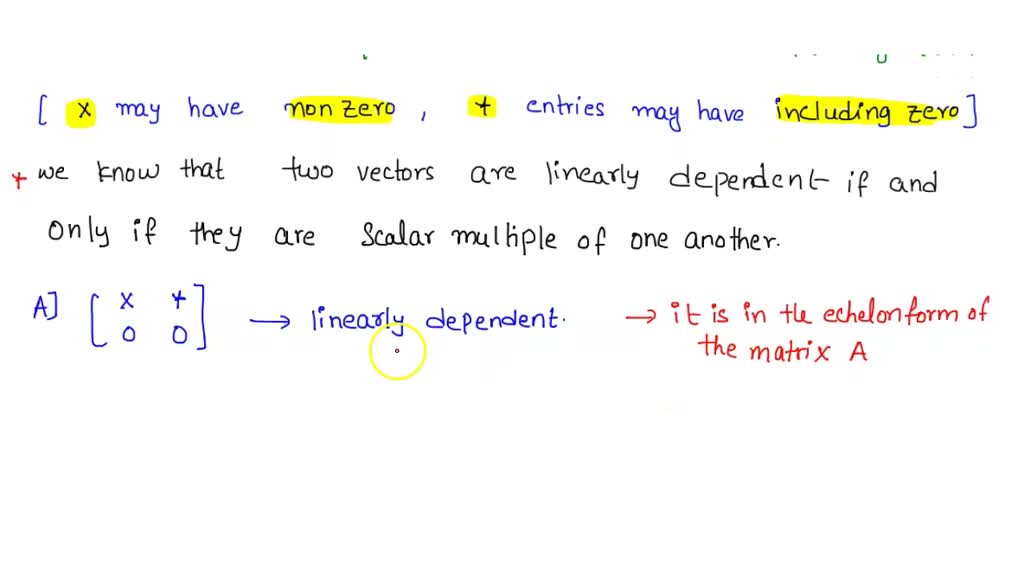 [ x may have non zero , + entries may have including zero ]
+ we know that two vectors are linearly dependent if and
only if they are scalar multiple of one another.
A] [ x + → linearly dependent. → it is in the echelon form of
0 0 ] the matrix A